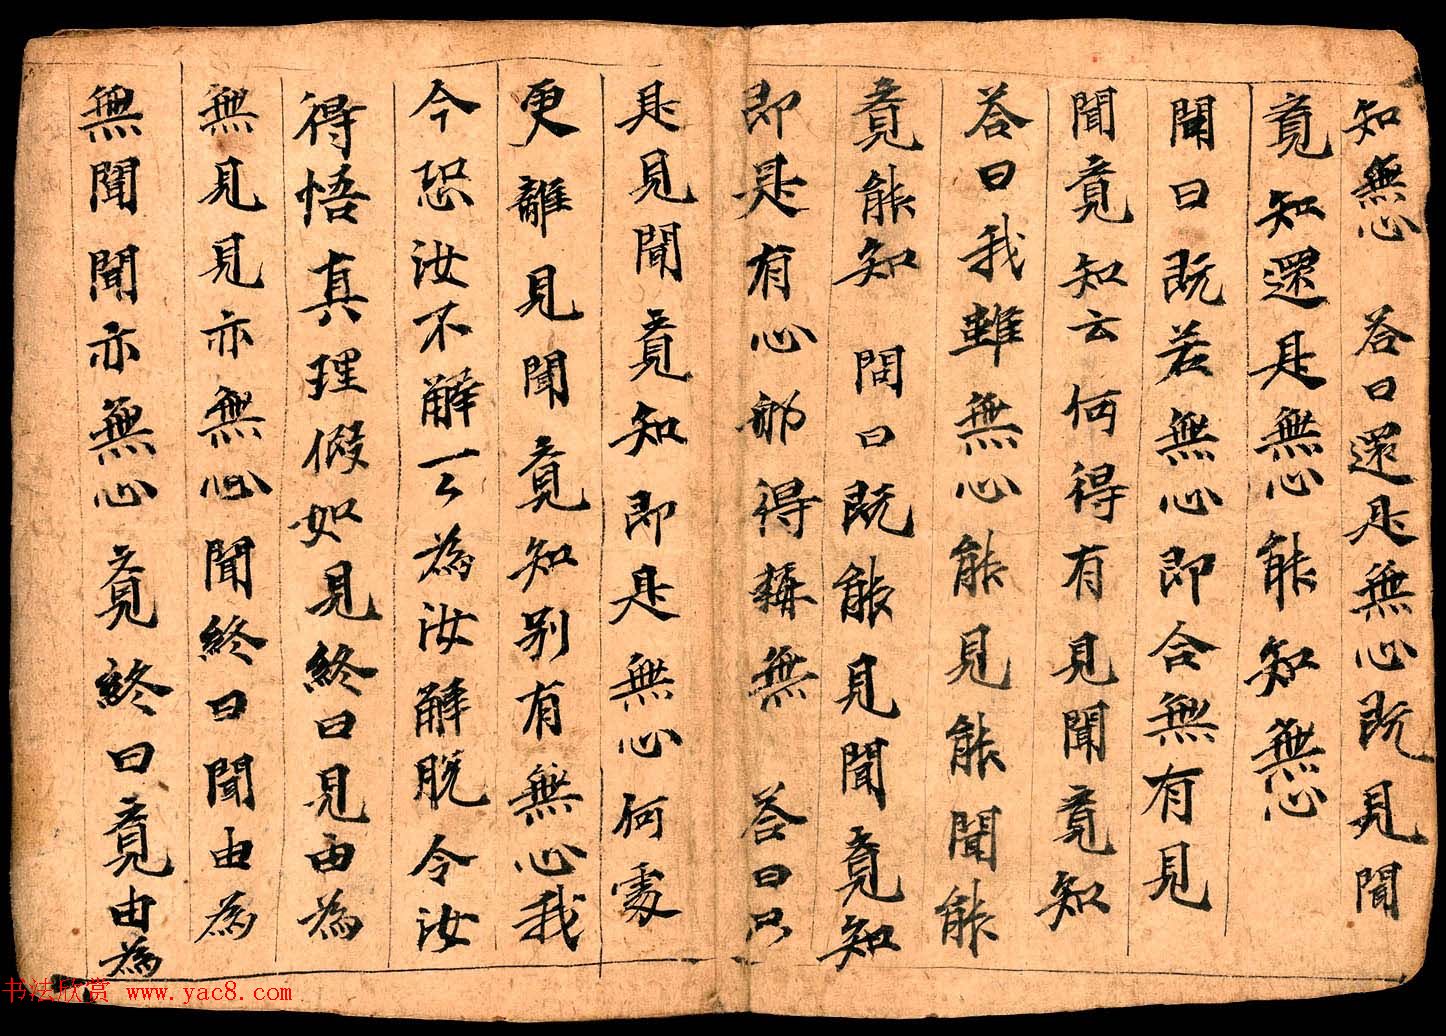 知無心 答曰還是無心既見聞
覺知還是無心能知無心
問曰既若無心即合無有見
聞覺知云何得有見聞覺知
答曰我雖無心能見能聞能
覺能知 問曰既能見聞覺知
即是有心那得稱無 答曰只
是見聞覺知即是無心何處
更離見聞覺知別有無心我
今恐汝不解一一為汝解脫令汝
得悟真理假如見終日見由為
無見見亦無心聞終日聞由為
無聞聞亦無心覺終日覺由為
书法欣赏 www.yac8.com